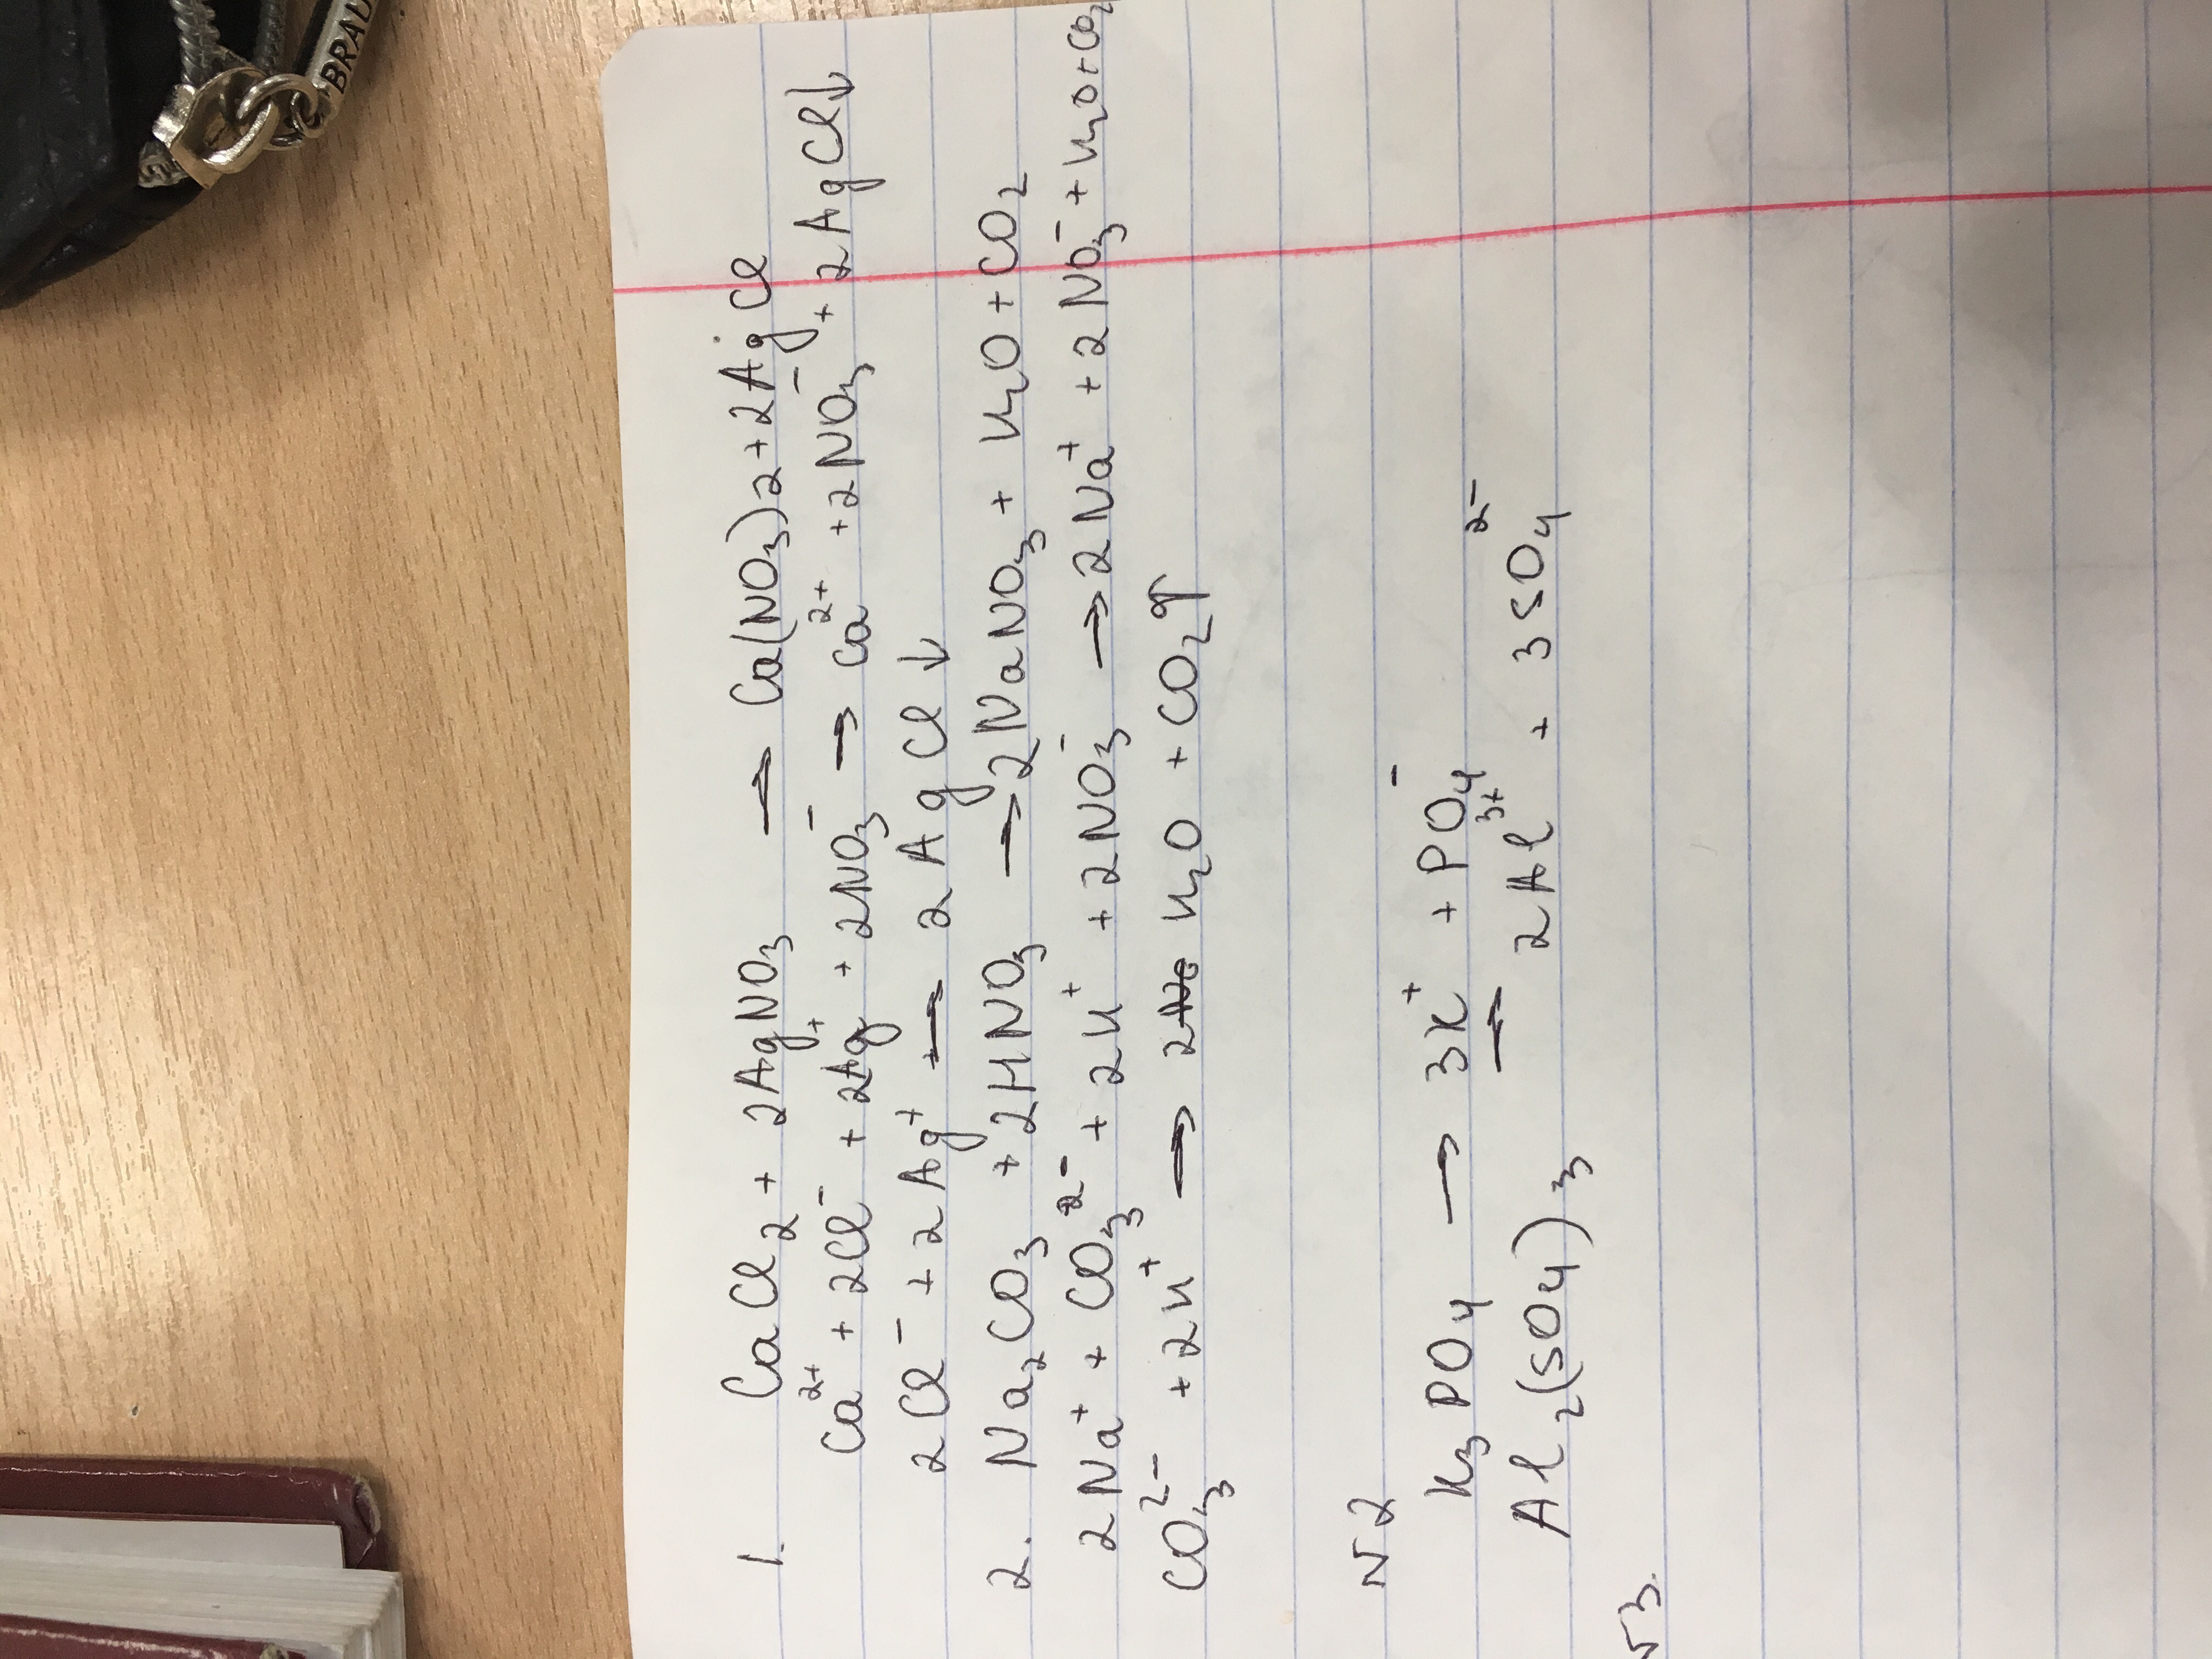 BRAU
1. CaCl₂ + 2AgNO₃ → Ca(NO₃)2 + 2AgCl
Ca²⁺ + 2Cl⁻ + 2Ag⁺ + 2NO₃⁻ → Ca²⁺ + 2NO₃⁻ + 2AgCl↓
2Cl⁻ + 2Ag⁺ → 2AgCl↓
2. Na₂CO₃ + 2HNO₃ → 2NaNO₃ + H₂O + CO₂
2Na⁺ + CO₃²⁻ + 2H⁺ + 2NO₃⁻ → 2Na⁺ + 2NO₃⁻ + H₂O + CO₂
CO₃²⁻ + 2H⁺ → H₂O + CO₂↑
N2
K₃PO₄ → 3K⁺ + PO₄⁻
Al₂(SO₄)₃ → 2Al³⁺ + 3SO₄²⁻
N3.